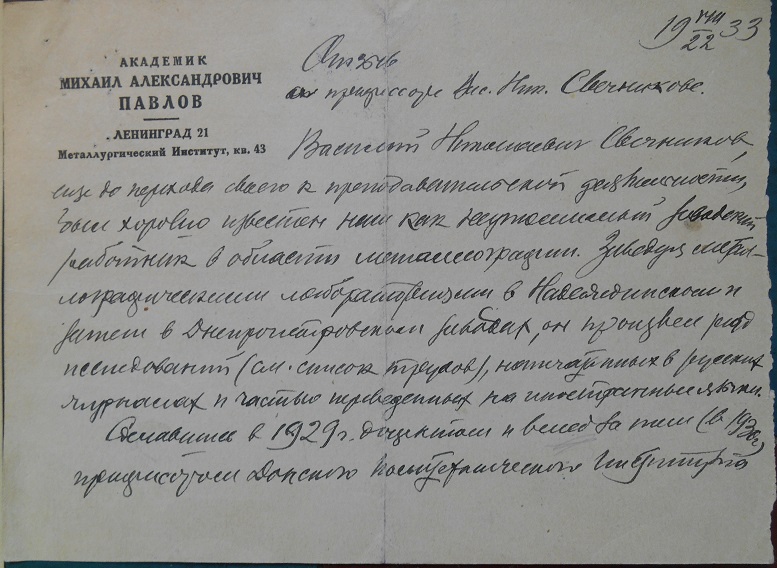 19 VIII/22 33
АКАДЕМИК
МИХАИЛ АЛЕКСАНДРОВИЧ
ПАВЛОВ
ЛЕНИНГРАД 21
Металлургический Институт, кв. 43
Отзыв
о профессоре Вас. Ник. Свечникове.
Василий Николаевич Свечников,
еще до перехода своего к преподавательской должности,
был хорошо известен нам как неутомимый заводский
работник в области металлографии. Заведуя метал-
лографическими лабораториями в Надеждинском и
затем в Днепропетровском заводах, он произвел ряд
исследований (см. список трудов), напечатанных в русских
журналах и частью переведенных на иностранные языки.
Сделавшись в 1929 г. доцентом и вслед за тем (в 1930 г.)
профессором Донского Политехнического Института